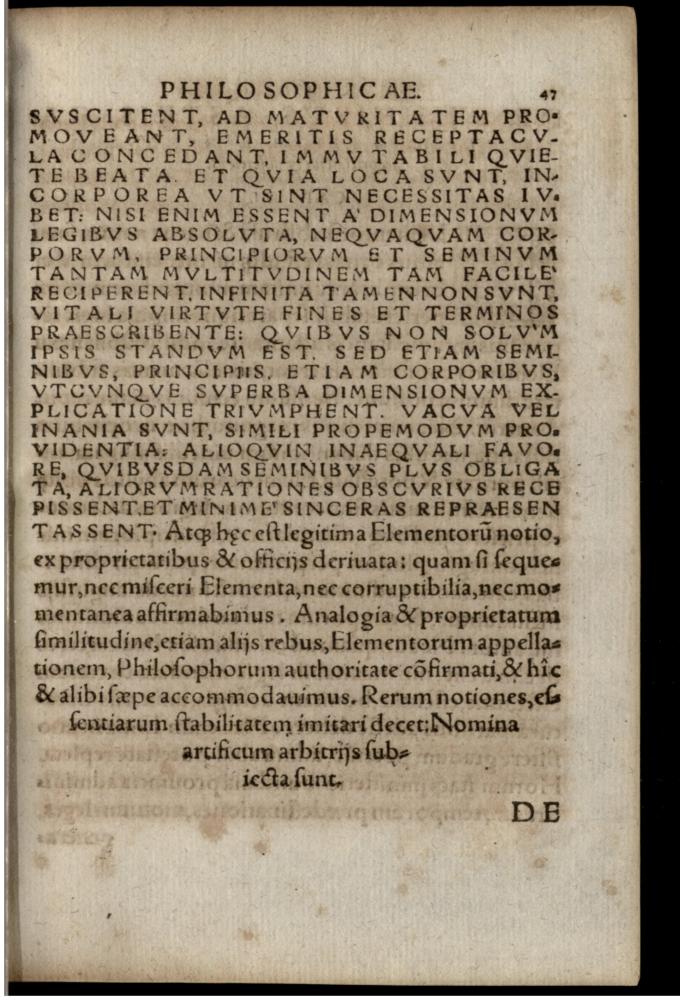 PHILOSOPHICAE. 47
SVSCITENT, AD MATVRITATEM PRO-
MOVEANT, EMERITIS RECEPTACV-
LA CONCEDANT, IMMVTABILI QVIE-
TE BEATA. ET QVIA LOCA SVNT, IN-
CORPOREA VT SINT NECESSITAS IV-
BET: NISI ENIM ESSENT A' DIMENSIONVM
LEGIBVS ABSOLVTA, NEQVAQVAM COR-
PORVM, PRINCIPIORVM ET SEMINVM
TANTAM MVLTITVDINEM TAM FACILE'
RECIPERENT, INFINITA TAMEN NON SVNT,
VITALI VIRTVTE FINES ET TERMINOS
PRAESCRIBENTE: QVIBVS NON SOLV'M
IPSIS STANDVM EST, SED ETIAM SEMI-
NIBVS, PRINCIPIIS, ETIAM CORPORIBVS,
VTCVNQVE SVPERBA DIMENSIONVM EX-
PLICATIONE TRIVMPHENT. VACVA VEL
INANIA SVNT, SIMILI PROPEMODVM PRO-
VIDENTIA: ALIOQVIN INAEQVALI FAVO-
RE, QVIBVSDAM SEMINIBVS PLVS OBLIGA
TA, ALIORVM RATIONES OBSCVRIVS RECE
PISSENT, ET MINIME' SINCERAS REPRAESEN
TASSENT. Atq; hęc est legitima Elementorũ notio,
ex proprietatibus & officijs deriuata: quam si seque-
mur, nec misceri Elementa, nec corruptibilia, nec mo-
mentanea affirmabimus. Analogia & proprietatum
similitudine, etiam alijs rebus, Elementorum appella-
tionem, Philosophorum authoritate cõfirmati, & hîc
& alibi sæpe accommodauimus. Rerum notiones, es-
sentiarum stabilitatem imitari decet: Nomina
artificum arbitrijs sub-
iecta sunt.
DE